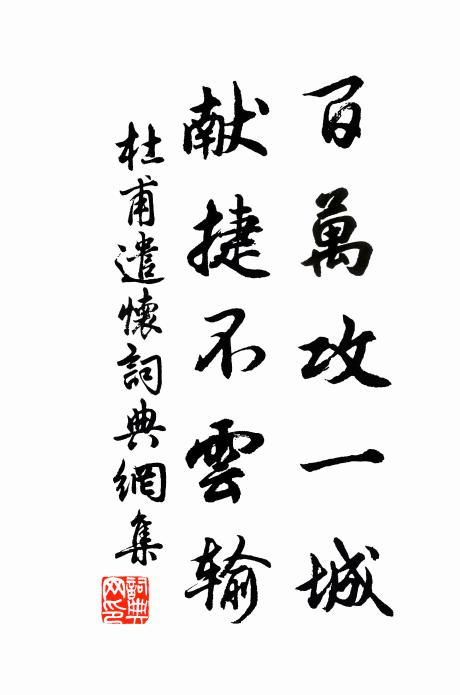 百萬攻一城
献捷不雲輸
杜甫遣懷詞典網集
詞典網印